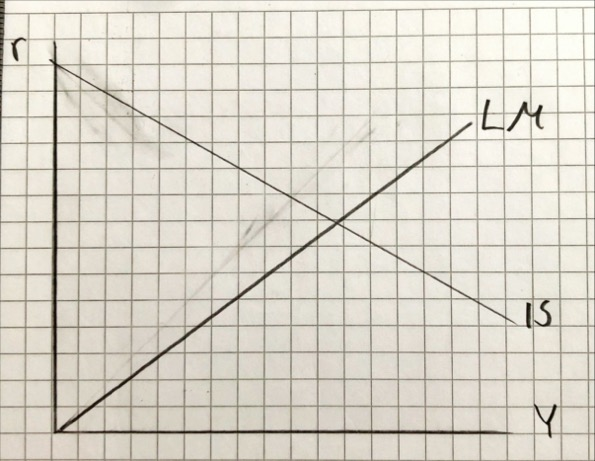 r
LM
IS
Y